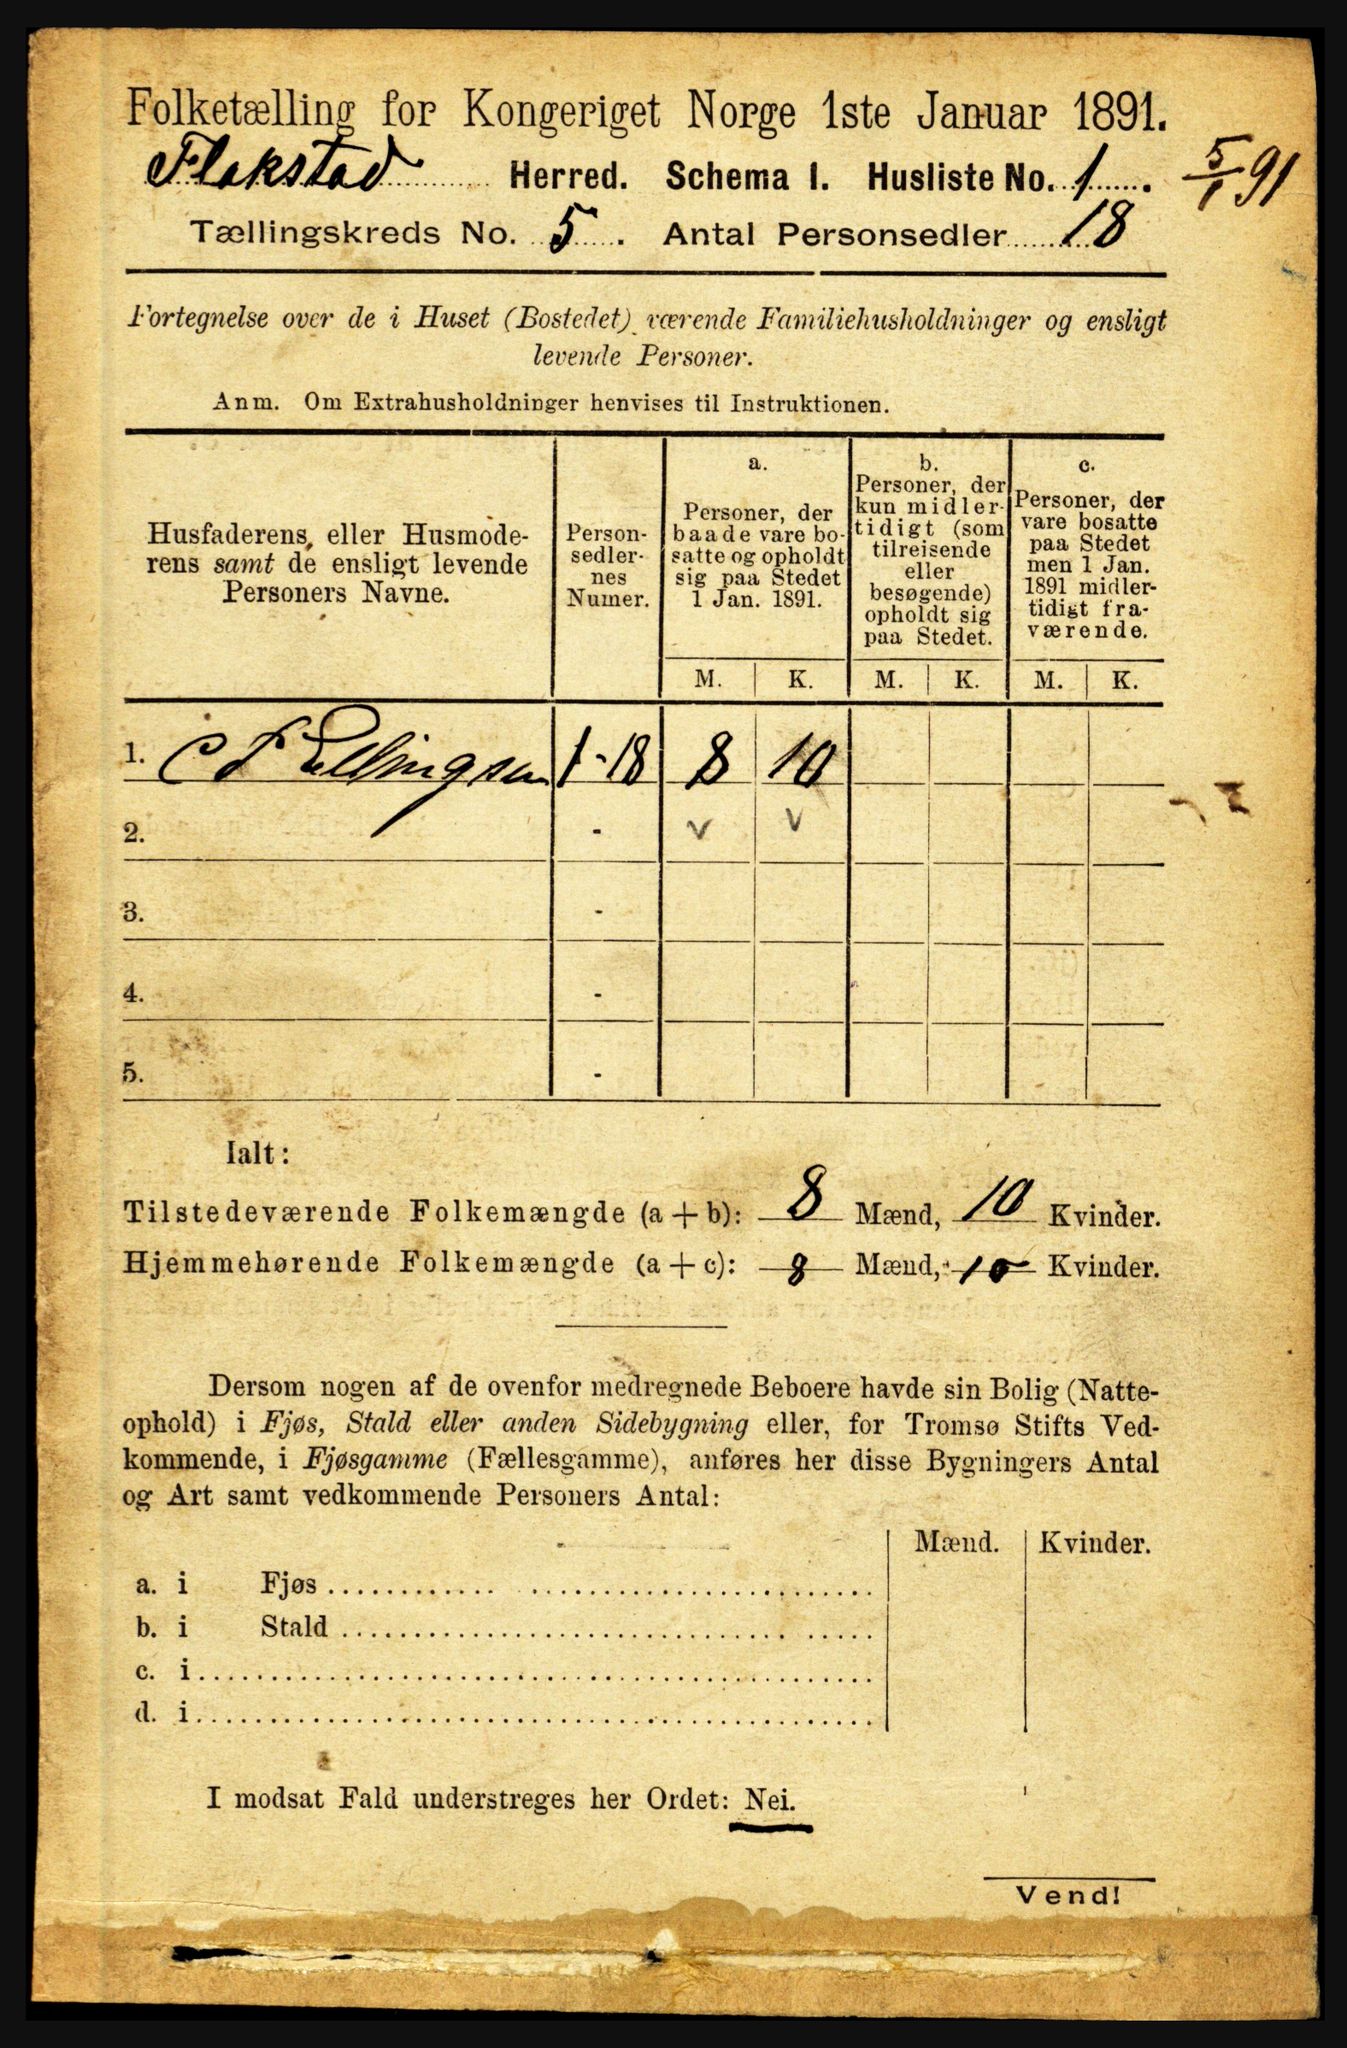 Folketælling for Kongeriget Norge 1ste Januar 1891.
Flakstad Herred. Schema I. Husliste No. 1.
5/1 91
Tællingskreds No. 5. Antal Personsedler 18
Fortegnelse over de i Huset (Bostedet) værende Familiehusholdninger og ensligt
levende Personer.
Anm. Om Extrahusholdninger henvises til Instruktionen.
Husfaderens, eller Husmode-
rens samt de ensligt levende
Personers Navne.
Person-
sedler-
nes
Numer.
a.
Personer, der
baade vare bo-
satte og opholdt
sig paa Stedet
1 Jan. 1891.
b.
Personer, der
kun midler-
tidigt (som
tilreisende
eller
besøgende)
opholdt sig
paa Stedet.
c.
Personer, der
vare bosatte
paa Stedet
men 1 Jan.
1891 midler-
tidigt fra-
værende.
M. K. M. K. M. K.
1. C F Ellingsen 1-18 8 10
2. - v v
3. -
4. -
5. -
Ialt:
Tilstedeværende Folkemængde (a + b): 8 Mænd, 10 Kvinder.
Hjemmehørende Folkemængde (a + c): 8 Mænd, 10 Kvinder.
Dersom nogen af de ovenfor medregnede Beboere havde sin Bolig (Natte-
ophold) i Fjøs, Stald eller anden Sidebygning eller, for Tromsø Stifts Ved-
kommende, i Fjøsgamme (Fællesgamme), anføres her disse Bygningers Antal
og Art samt vedkommende Personers Antal:
Mænd. Kvinder.
a. i Fjøs
b. i Stald
c. i
d. i
I modsat Fald understreges her Ordet: Nei.
Vend!